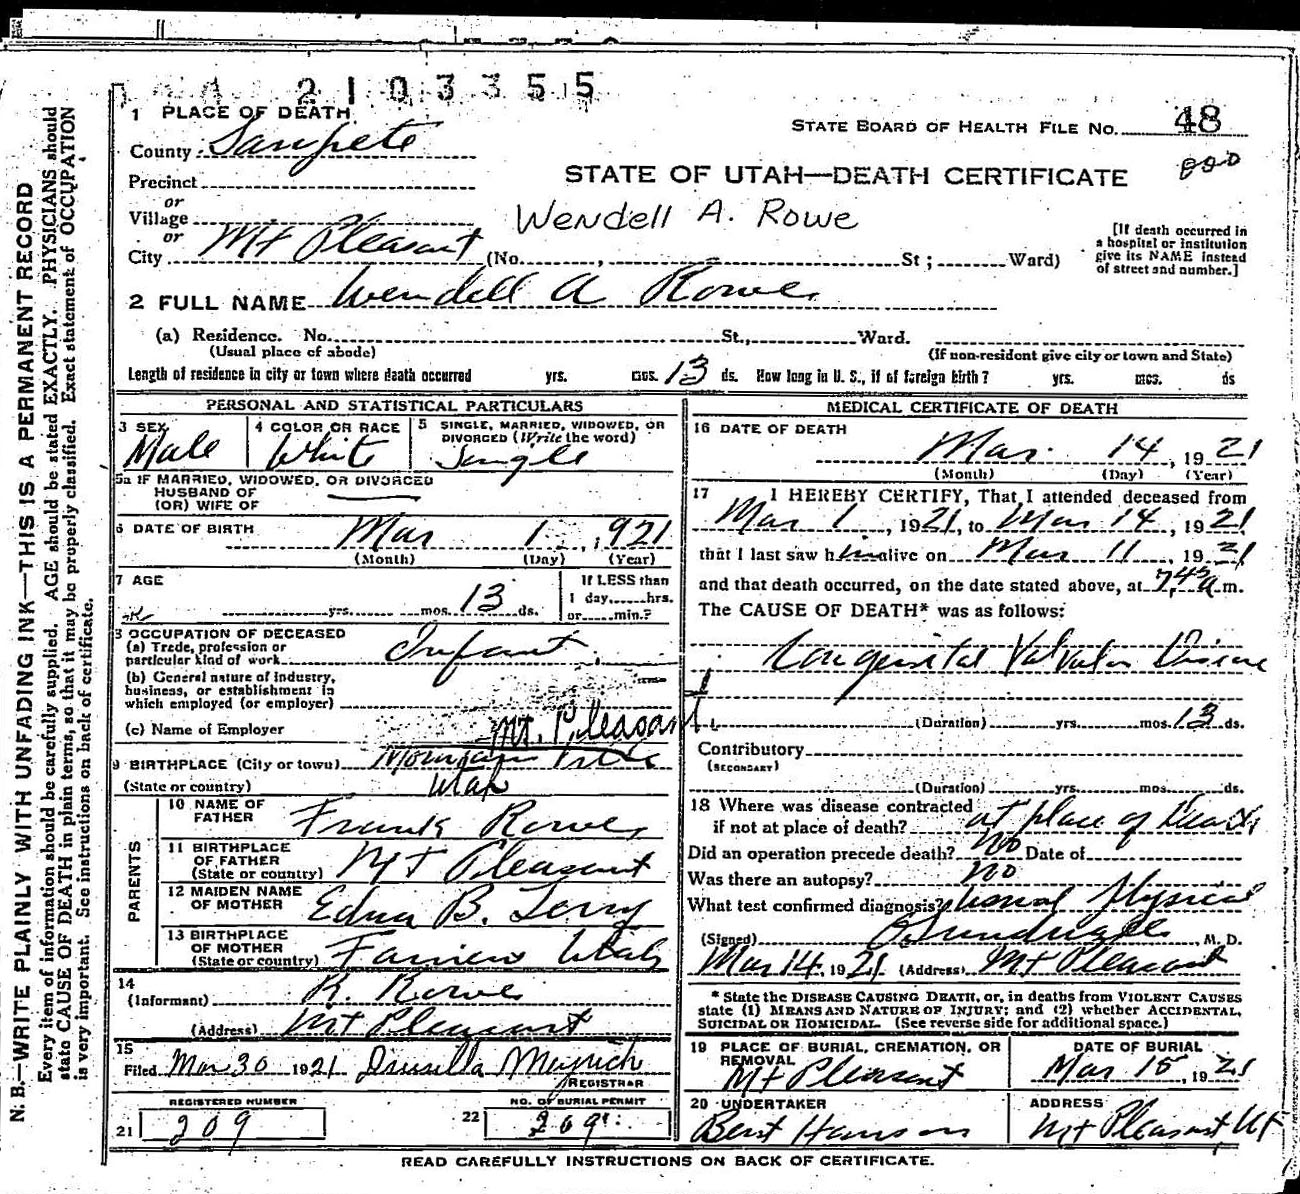 2103355
1 PLACE OF DEATH
STATE BOARD OF HEALTH FILE No. 48
County Sanpete
STATE OF UTAH—DEATH CERTIFICATE
Precinct
or
Village
Wendell A. Rowe
or
City Mt Pleasant (No. , St; Ward)
[If death occurred in
a hospital or institution
give its NAME instead
of street and number.]
2 FULL NAME Wendell A Rowe
(a) Residence. No. St., Ward.
(Usual place of abode) (If non-resident give city or town and State)
Length of residence in city or town where death occurred yrs. mos. 13 ds. How long in U. S., if of foreign birth? yrs. mos. ds
PERSONAL AND STATISTICAL PARTICULARS
3 SEX
Male
4 COLOR OR RACE
White
5 SINGLE, MARRIED, WIDOWED, OR
DIVORCED (Write the word)
Single
5a IF MARRIED, WIDOWED, OR DIVORCED
HUSBAND OF
(OR) WIFE OF
6 DATE OF BIRTH Mar 1, 1921
(Month) (Day) (Year)
7 AGE
yrs. mos. 13 ds.
If LESS than
1 day,......hrs.
or......min.?
8 OCCUPATION OF DECEASED
(a) Trade, profession or
particular kind of work Infant
(b) General nature of industry,
business, or establishment in
which employed (or employer)
(c) Name of Employer
Mt. Pleasant
9 BIRTHPLACE (City or town)
(State or country) Utah
PARENTS
10 NAME OF
FATHER Frank Rowe
11 BIRTHPLACE
OF FATHER
(State or country) Mt Pleasant
12 MAIDEN NAME
OF MOTHER Edna B. Terry
13 BIRTHPLACE
OF MOTHER
(State or country) Fairview Utah
14
(Informant) R. Rowe
(Address) Mt Pleasant
15
Filed Mar 30 1921 Drusilla
REGISTRAR
REGISTERED NUMBER
21 209
NO. OF BURIAL PERMIT
22 209
MEDICAL CERTIFICATE OF DEATH
16 DATE OF DEATH
Mar. 14, 1921
(Month) (Day) (Year)
17 I HEREBY CERTIFY, That I attended deceased from
Mar 1, 1921, to Mar 14, 1921
that I last saw him alive on Mar 11, 1921
and that death occurred, on the date stated above, at 7,45 a m.
The CAUSE OF DEATH* was as follows:
Congenital Valvular Disease
(Duration) yrs. mos. 13 ds.
Contributory
(SECONDARY)
(Duration) yrs. mos. ds.
18 Where was disease contracted
if not at place of death? at place of Death
Did an operation precede death? No Date of
Was there an autopsy? no
What test confirmed diagnosis? Usual Physical
(Signed) , M. D.
Mar 14, 1921 (Address) Mt Pleasant
* State the DISEASE CAUSING DEATH, or, in deaths from VIOLENT CAUSES
state (1) MEANS AND NATURE OF INJURY; and (2) whether ACCIDENTAL,
SUICIDAL OR HOMICIDAL. (See reverse side for additional space.)
19 PLACE OF BURIAL, CREMATION, OR
REMOVAL
Mt Pleasant
DATE OF BURIAL
Mar 15, 1921
20 UNDERTAKER
Bent Hanson
ADDRESS
Mt Pleasant Ut
READ CAREFULLY INSTRUCTIONS ON BACK OF CERTIFICATE.
N. B.—WRITE PLAINLY WITH UNFADING INK—THIS IS A PERMANENT RECORD
Every item of information should be carefully supplied. AGE should be stated EXACTLY. PHYSICIANS should
state CAUSE OF DEATH in plain terms, so that it may be properly classified. Exact statement of OCCUPATION
is very important. See instructions on back of certificate.